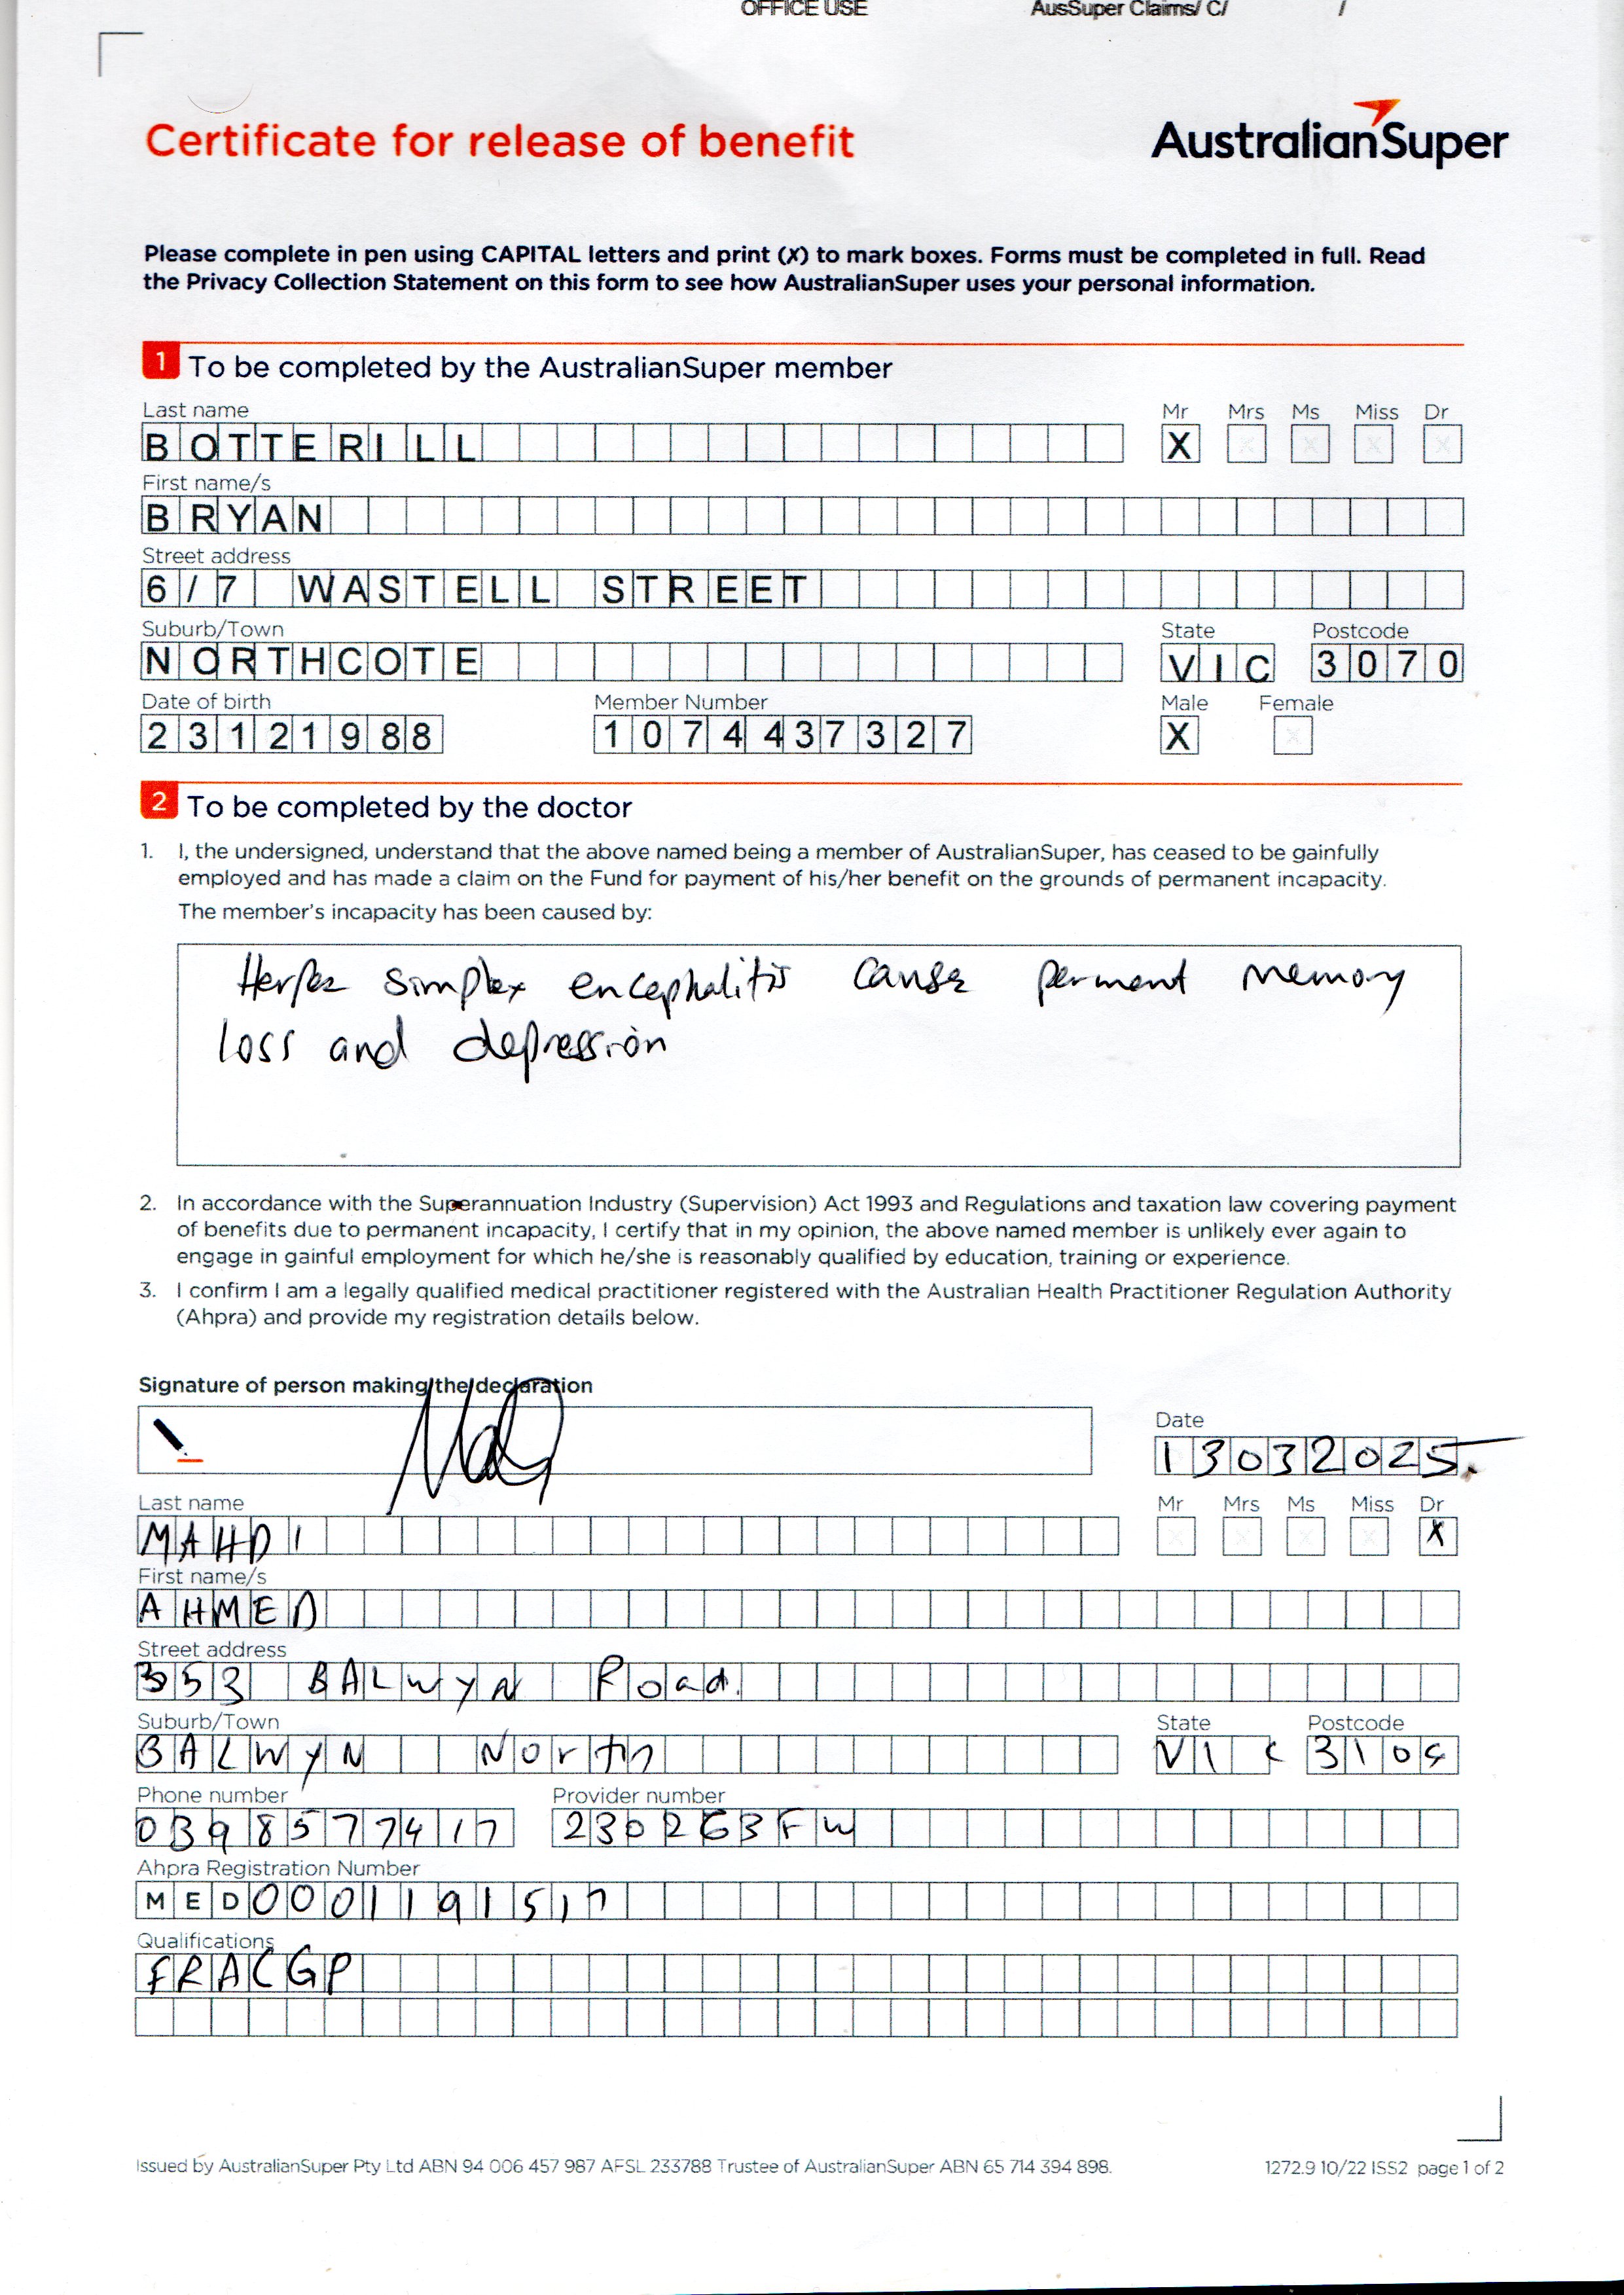 OFFICE USE AusSuper Claims/ C/ /
Certificate for release of benefit
AustralianSuper
Please complete in pen using CAPITAL letters and print (X) to mark boxes. Forms must be completed in full. Read
the Privacy Collection Statement on this form to see how AustralianSuper uses your personal information.
1 To be completed by the AustralianSuper member
Last name Mr Mrs Ms Miss Dr
BOTTERILL X
First name/s
BRYAN
Street address
6/7 WASTELL STREET
Suburb/Town State Postcode
NORTHCOTE VIC 3070
Date of birth Member Number Male Female
23121988 1074437327 X
2 To be completed by the doctor
1. I, the undersigned, understand that the above named being a member of AustralianSuper, has ceased to be gainfully
employed and has made a claim on the Fund for payment of his/her benefit on the grounds of permanent incapacity.
The member's incapacity has been caused by:
Herpes simplex encephalitis cause perment memory
loss and depression
2. In accordance with the Superannuation Industry (Supervision) Act 1993 and Regulations and taxation law covering payment
of benefits due to permanent incapacity, I certify that in my opinion, the above named member is unlikely ever again to
engage in gainful employment for which he/she is reasonably qualified by education, training or experience.
3. I confirm I am a legally qualified medical practitioner registered with the Australian Health Practitioner Regulation Authority
(Ahpra) and provide my registration details below.
Signature of person making the declaration
Date
13032025
Last name Mr Mrs Ms Miss Dr
MAHDI X
First name/s
AHMED
Street address
353 BALWYN Road.
Suburb/Town State Postcode
BALWYN North VIC 3104
Phone number Provider number
0398577417 230263FW
Ahpra Registration Number
MED0001191517
Qualifications
FRACGP
Issued by AustralianSuper Pty Ltd ABN 94 006 457 987 AFSL 233788 Trustee of AustralianSuper ABN 65 714 394 898.
1272.9 10/22 ISS2 page 1 of 2